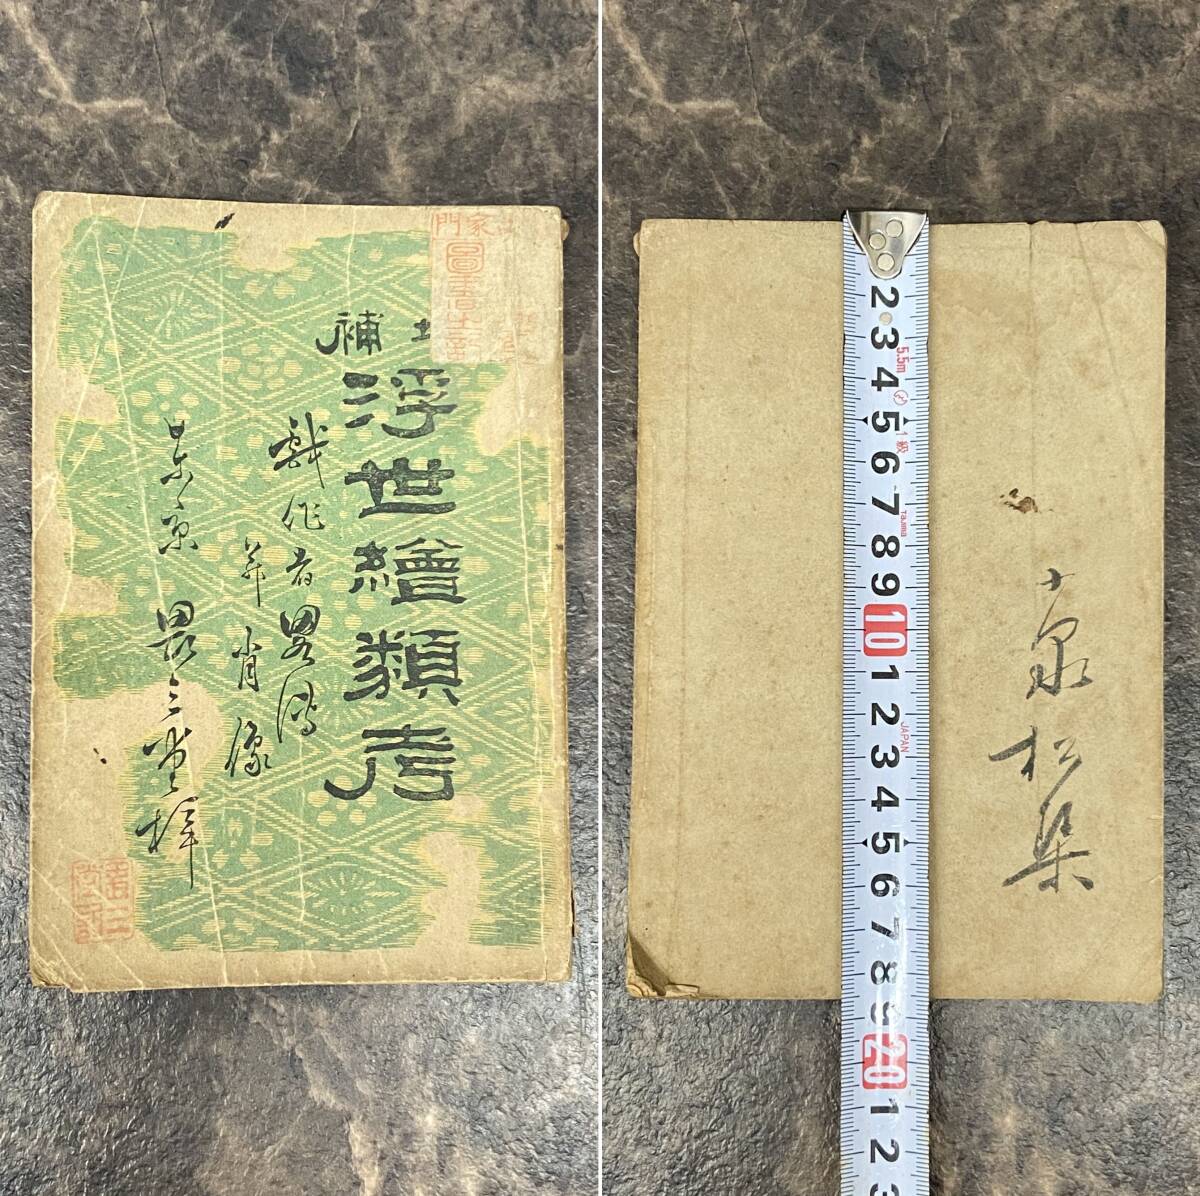 補
浮世繪類考
戯作者畧傳
并肖像
東京 畏三堂梓
圖書
家門
2 3 4 5 6 7 8 9 10 1 2 3 4 5 6 7 8 9 20 1 2 3
5.5m
1級
Tajima
JAPAN